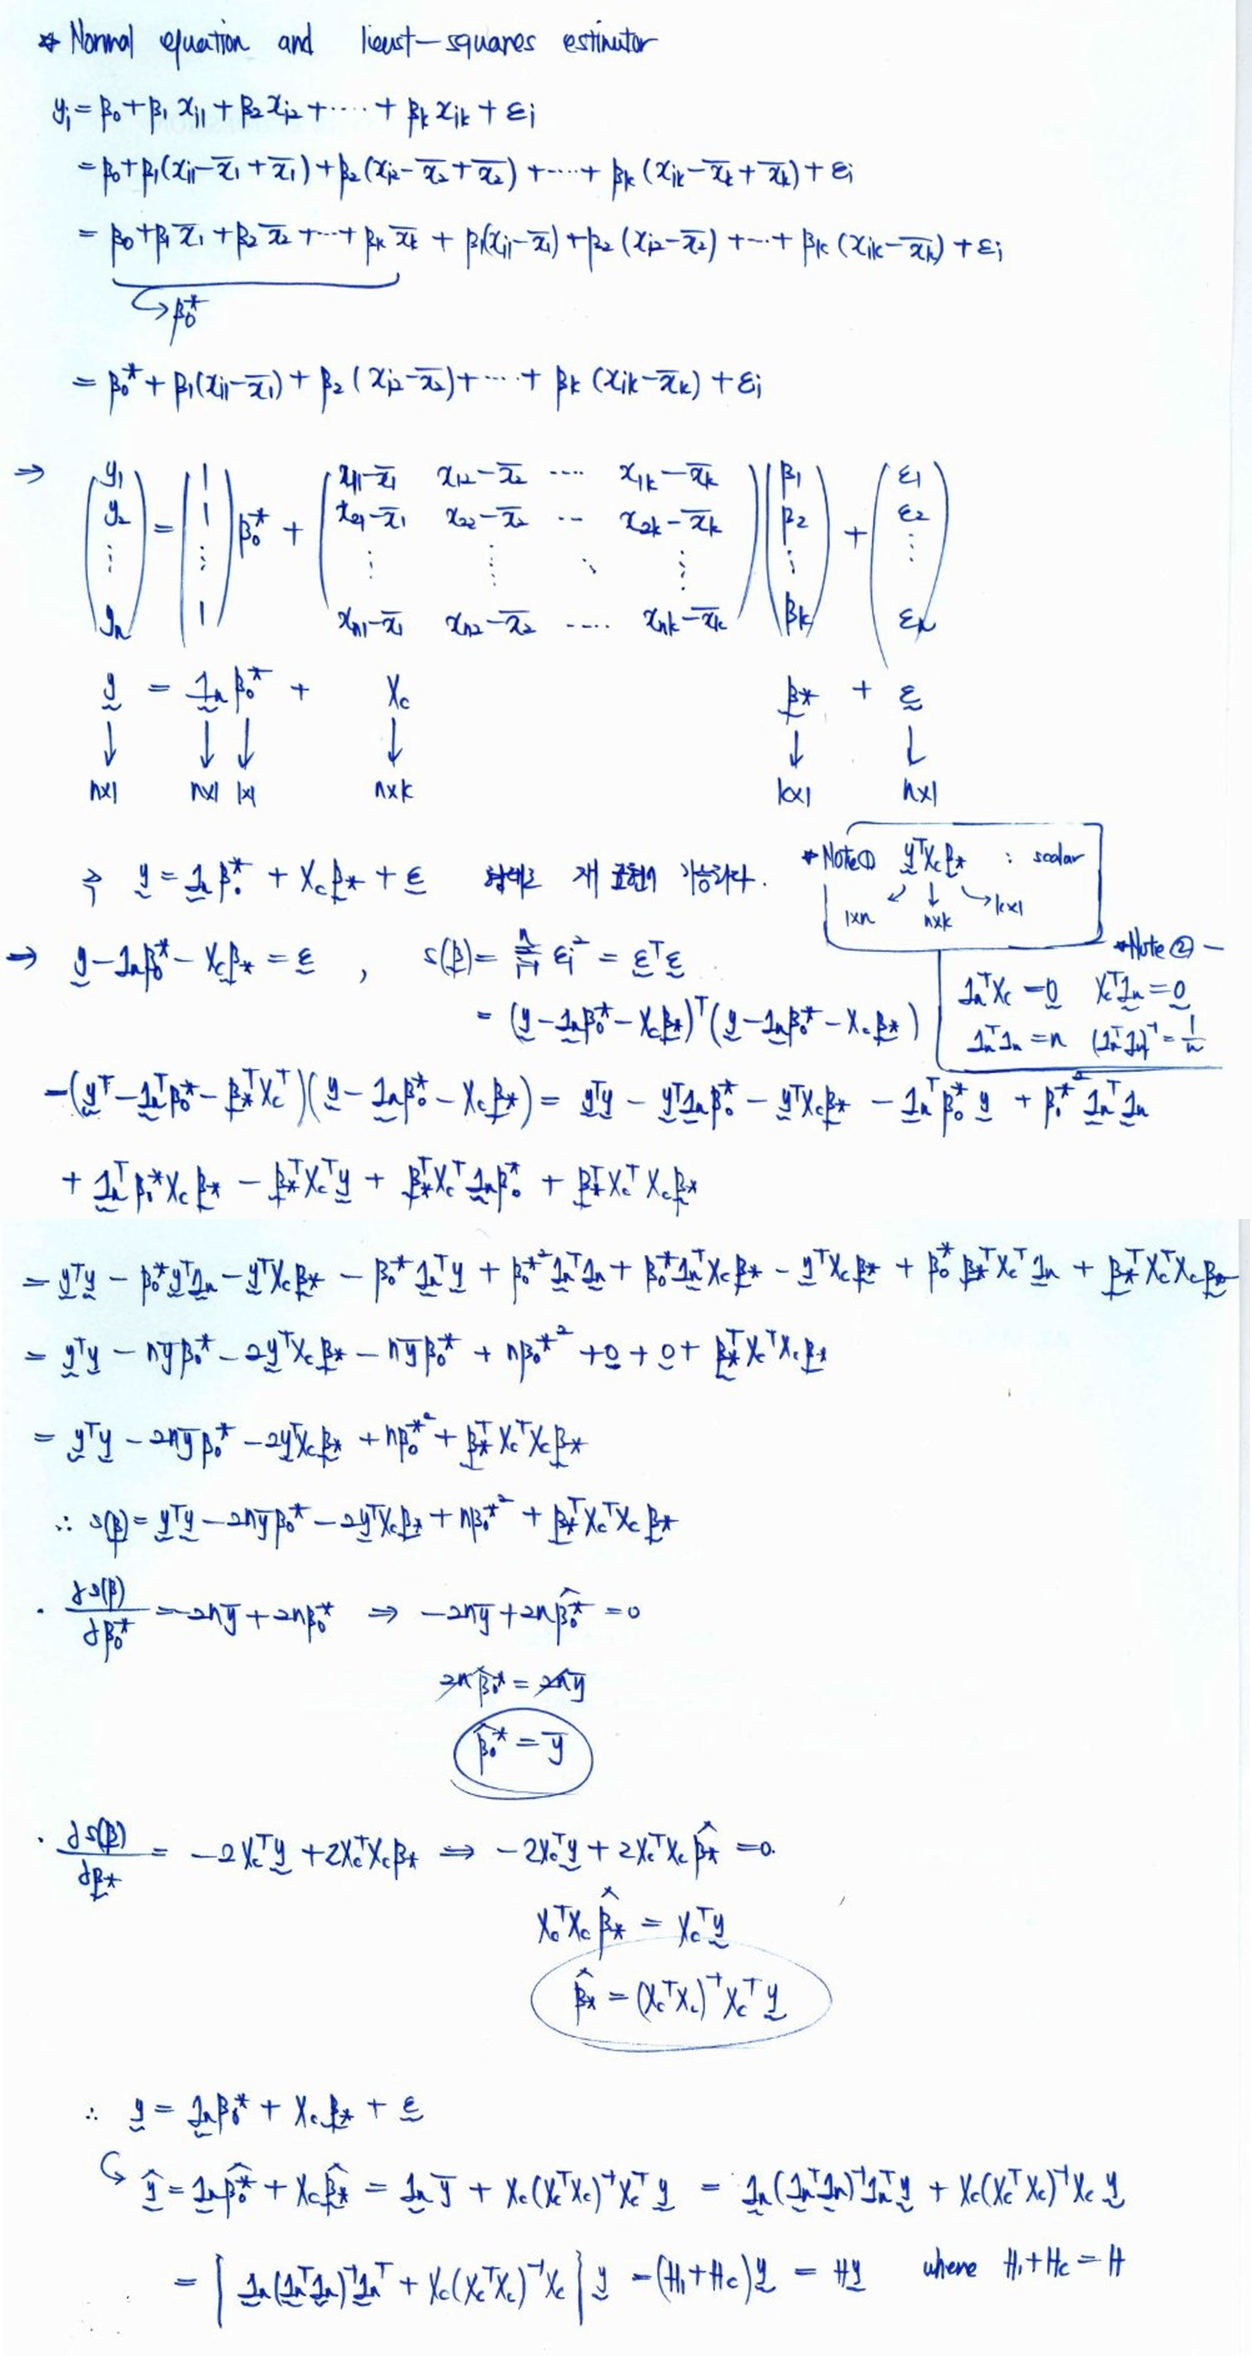 * Normal equation and least-squares estimator
yᵢ = β₀ + β₁ xᵢ₁ + β₂ xᵢ₂ + ····· + βₖ xᵢₖ + εᵢ
= β₀ + β₁(xᵢ₁ - x̄₁ + x̄₁) + β₂(xᵢ₂ - x̄₂ + x̄₂) + ····· + βₖ(xᵢₖ - x̄ₖ + x̄ₖ) + εᵢ
= β₀ + β₁x̄₁ + β₂x̄₂ + ···· + βₖx̄ₖ + β₁(xᵢ₁ - x̄₁) + β₂(xᵢ₂ - x̄₂) + ···· + βₖ(xᵢₖ - x̄ₖ) + εᵢ
↪ β₀*
= β₀* + β₁(xᵢ₁ - x̄₁) + β₂(xᵢ₂ - x̄₂) + ····· + βₖ(xᵢₖ - x̄ₖ) + εᵢ
⇒ (y₁ y₂ ⋮ yₙ) = (1 1 ⋮ 1) β₀* + (x₁₁-x̄₁ x₁₂-x̄₂ ···· x₁ₖ-x̄ₖ
x₂₁-x̄₁ x₂₂-x̄₂ ··· x₂ₖ-x̄ₖ
⋮ ⋮ ⋱ ⋮
xₙ₁-x̄₁ xₙ₂-x̄₂ ···· xₙₖ-x̄ₖ) (β₁ β₂ ⋮ βₖ) + (ε₁ ε₂ ⋮ εₙ)
y = 1ₙ β₀* + X_c β* + ε
↓ ↓ ↓ ↓ ↓ ↓
n×1 n×1 1×1 n×k k×1 n×1
즉 y = 1ₙβ₀* + X_cβ* + ε 형태로 재 표현이 가능하다.
* Note① yᵀX_cβ* : scalar
1×n n×k k×1
⇒ y - 1ₙβ₀* - X_cβ* = ε , s(β) = Σᵢ₌₁ⁿ εᵢ² = εᵀε
* Note② -
1ₙᵀX_c = 0 X_cᵀ1ₙ = 0
1ₙᵀ1ₙ = n (1ₙᵀ1ₙ)⁻¹ = 1/n
= (y - 1ₙβ₀* - X_cβ*)ᵀ(y - 1ₙβ₀* - X_cβ*)
= (yᵀ - 1ₙᵀβ₀* - β*ᵀX_cᵀ)(y - 1ₙβ₀* - X_cβ*) = yᵀy - yᵀ1ₙβ₀* - yᵀX_cβ* - 1ₙᵀβ₀*y + β₀*²1ₙᵀ1ₙ
+ 1ₙᵀβ₀*X_cβ* - β*ᵀX_cᵀy + β*ᵀX_cᵀ1ₙβ₀* + β*ᵀX_cᵀX_cβ*
= yᵀy - β₀*yᵀ1ₙ - yᵀX_cβ* - β₀*1ₙᵀy + β₀*²1ₙᵀ1ₙ + β₀*1ₙᵀX_cβ* - yᵀX_cβ* + β₀*β*ᵀX_cᵀ1ₙ + β*ᵀX_cᵀX_cβ*
= yᵀy - nȳβ₀* - 2yᵀX_cβ* - nȳβ₀* + nβ₀*² + 0 + 0 + β*ᵀX_cᵀX_cβ*
= yᵀy - 2nȳβ₀* - 2yᵀX_cβ* + nβ₀*² + β*ᵀX_cᵀX_cβ*
∴ s(β) = yᵀy - 2nȳβ₀* - 2yᵀX_cβ* + nβ₀*² + β*ᵀX_cᵀX_cβ*
· ∂s(β)/∂β₀* = -2nȳ + 2nβ₀* ⇒ -2nȳ + 2nβ̂₀* = 0
2nβ̂₀* = 2nȳ
β̂₀* = ȳ
· ∂s(β)/∂β* = -2X_cᵀy + 2X_cᵀX_cβ* ⇒ -2X_cᵀy + 2X_cᵀX_cβ̂* = 0.
X_cᵀX_cβ̂* = X_cᵀy
β̂* = (X_cᵀX_c)⁻¹X_cᵀy
∴ y = 1ₙβ₀* + X_cβ* + ε
↪ ŷ = 1ₙβ̂₀* + X_cβ̂* = 1ₙȳ + X_c(X_cᵀX_c)⁻¹X_cᵀy = 1ₙ(1ₙᵀ1ₙ)⁻¹1ₙᵀy + X_c(X_cᵀX_c)⁻¹X_c y
= [1ₙ(1ₙᵀ1ₙ)⁻¹1ₙᵀ + X_c(X_cᵀX_c)⁻¹X_c] y = (H₁+H_c)y = Hy where H₁+H_c = H